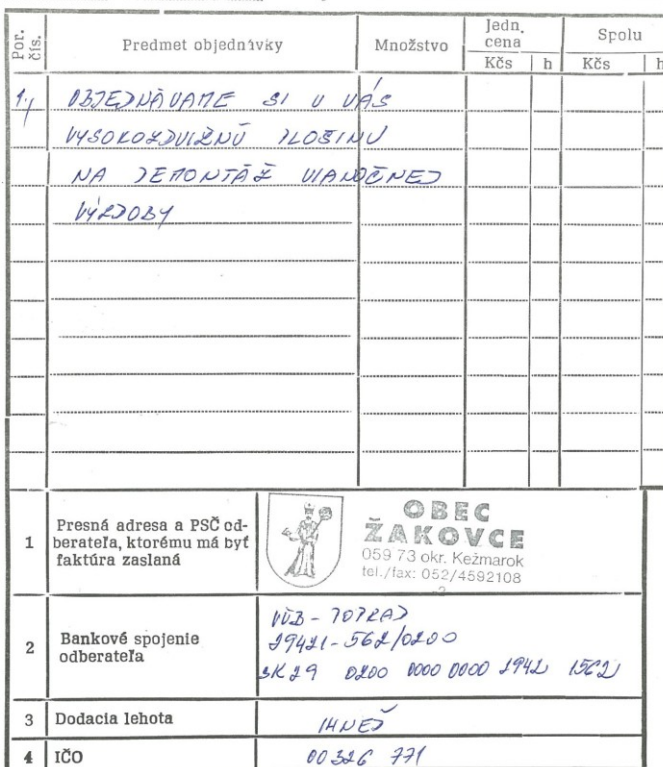 Por. čís.
Predmet objednávky
Množstvo
Jedn. cena
Spolu
Kčs h Kčs h
1., OBJEDNÁVAME SI U VÁS
VYSOKOZDVIŽNÚ PLOŠINU
NA DEMONTÁŽ VIANOČNEJ
VÝZDOBY
1 Presná adresa a PSČ od-
berateľa, ktorému má byť
faktúra zaslaná
OBEC
ŽAKOVCE
059 73 okr. Kežmarok
tel./fax: 052/4592108
-2-
2 Bankové spojenie
odberateľa
VÚB - POPRAD
29421-562/0200
SK29 0200 0000 0000 2942 1562
3 Dodacia lehota IHNEĎ
4 IČO 00 326 771